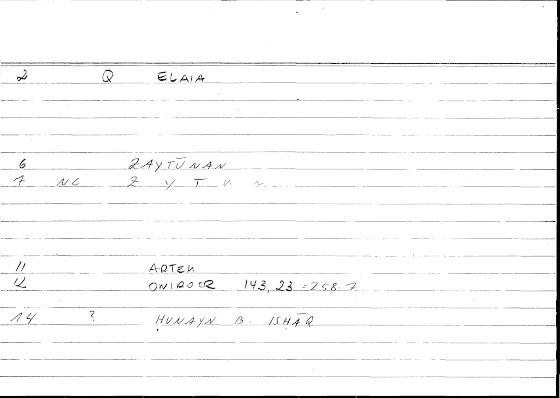 2 Q ELAIA
6 ZAYTŪNAN
7 NC Z Y T U N
11 ARTEM
12 ONIROCR 143, 23 = 258.7
14 ? ḤUNAYN B. ISḤĀQ